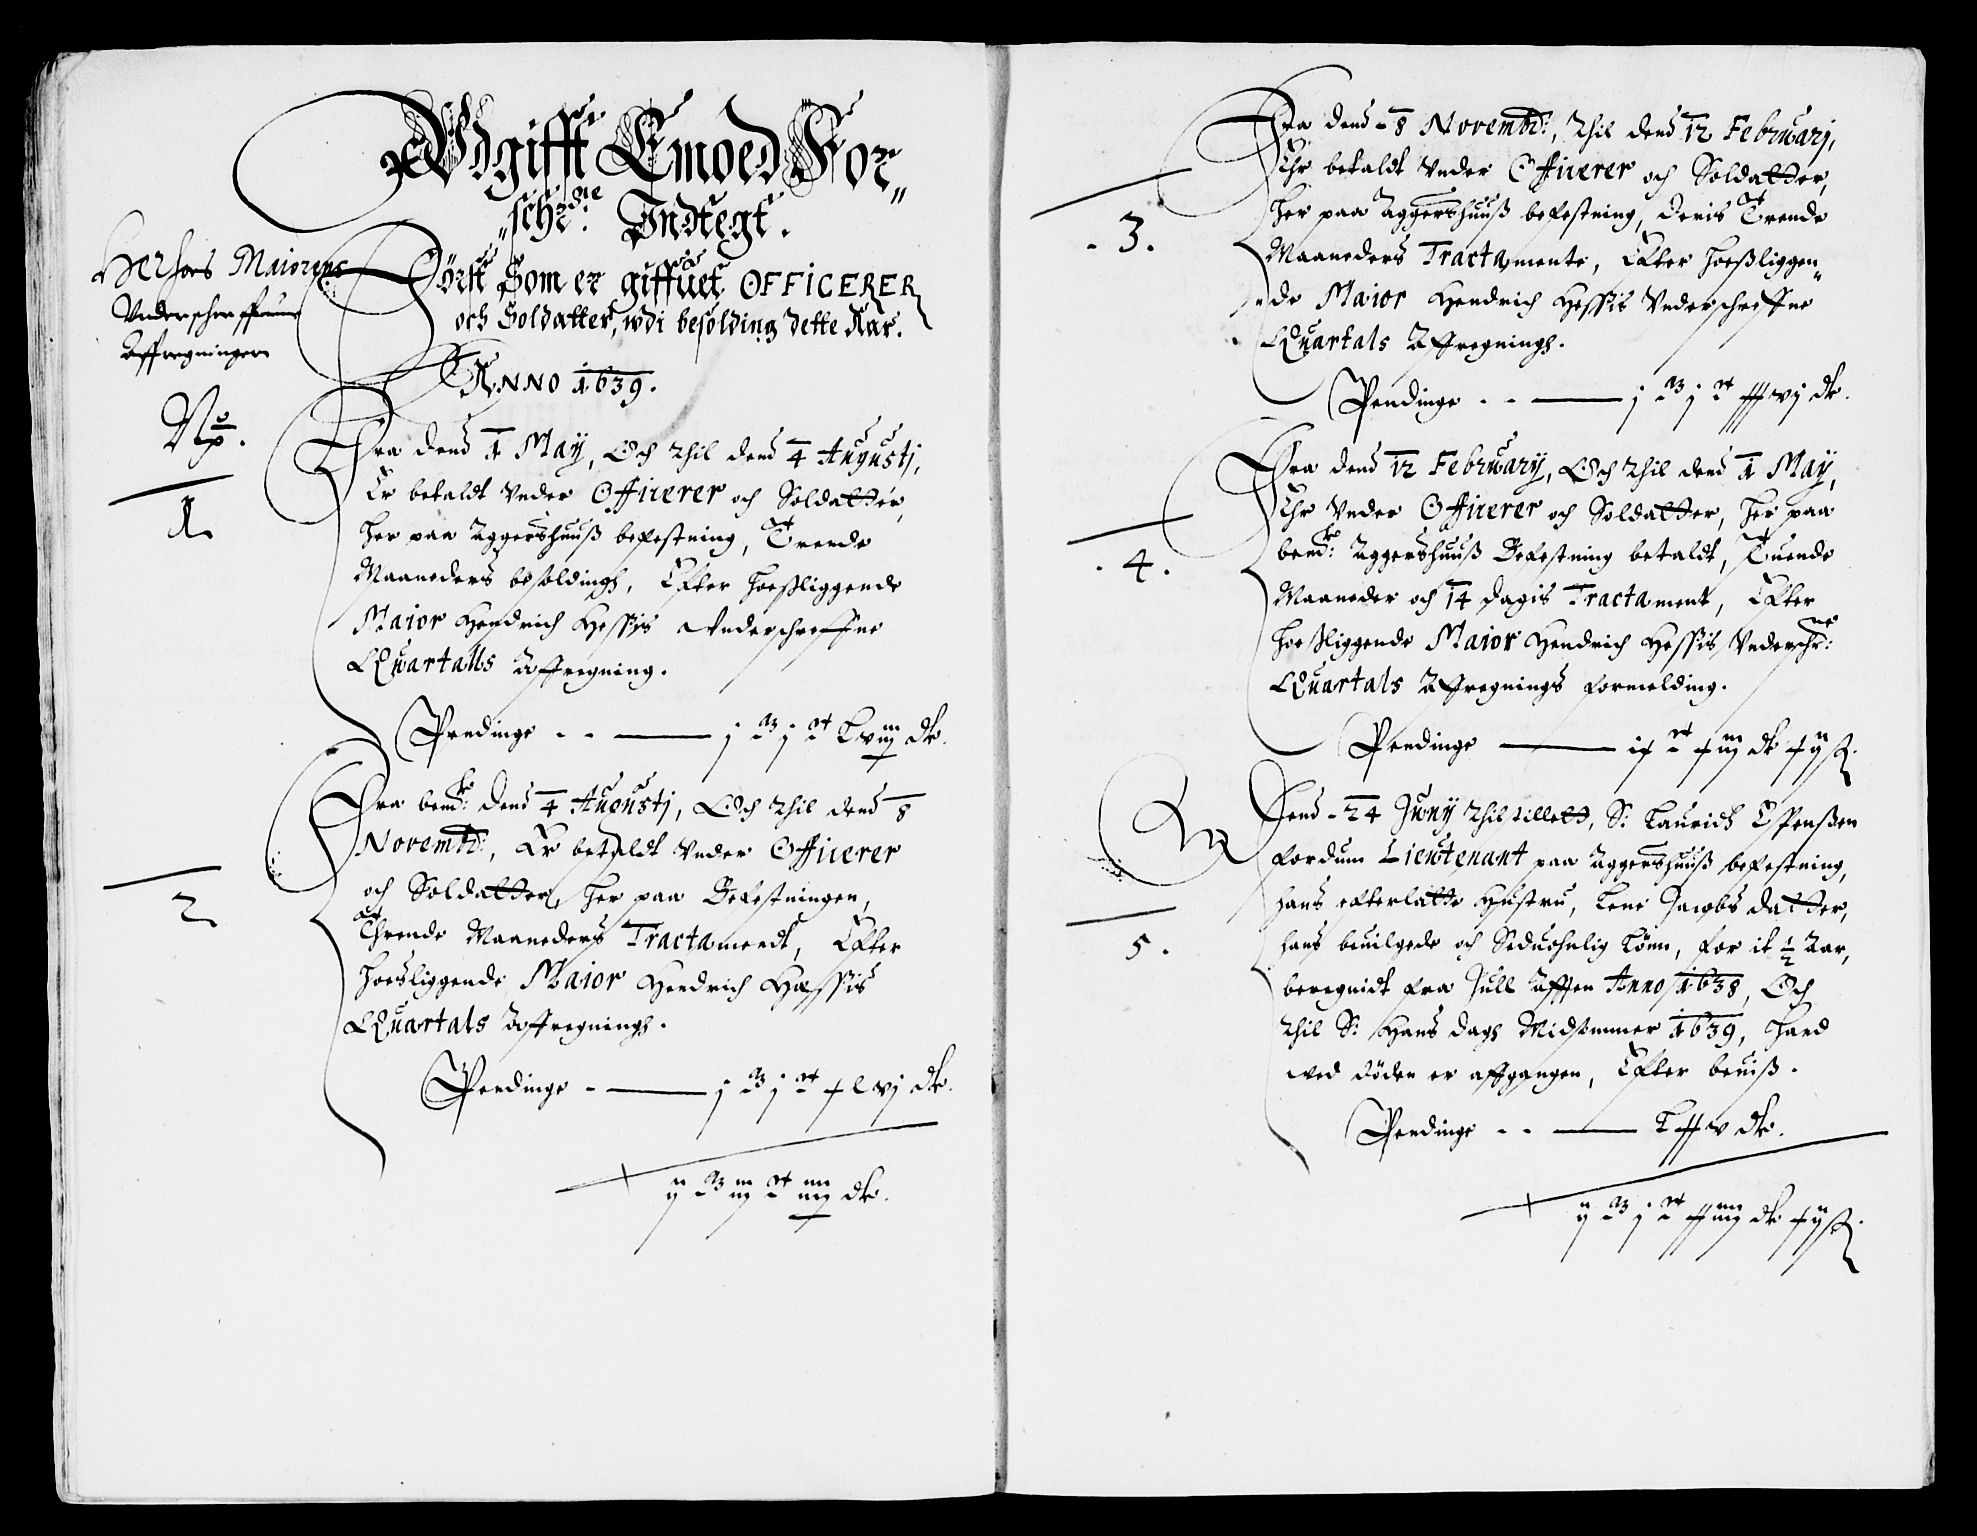 Wdgifft Emoed For„
„schr:ne Indtegt.
Herhoes Maiorens
Vnderschreffne
Affregninger
Först Som er giffuet OFFICERER
och Soldatter, wdi besolding dette Aar.
ANNO 1639.
No.
1
Fra dend 1 May, Och thil dend 4 Augustj,
Er betaldt Vnder Officerer och Soldatter,
her paa Aggershuuß befestning, Trende
Maaneders besoldingh, Efter hoeßliggende
Maior Hendrich Hessis Vnderschreffne
Quartalls Affregning.
Pendinge - - —— j M j ct Lviij dlr.
2
Fra bemd:te dend 4 Augustj, Och thil dend 8
Novembr:, Er betaldt Vnder Officerer
och Soldatter, her paa Befestningen,
Thrende Maaneders Tractamendt, Efter
hoesliggende Maior Hendrich Hessis
Quartals Affregningh.
Pendinge - —— j M j ct xlvj dlr.
ij M iij ct iiij dlr.
3.
Fra dend 8 Novembr:, thil dend 12 Februarj,
Ehr betaldt Vnder Officerer och Soldatter,
her paa Aggershuuß befestning, deris Trende
Maaneders Tractamente, Efter hoeßliggen„
„de Maior Hendrich Hessis Vnderschreffne
Quartals Affregningh.
Pendinge - - —— j M j ct xxxvj dlr.
4.
Fra dend 12 February, Och thil dend 1 May,
Ehr Vnder Officerer och Soldatter, her paa
bemd:te Aggershuuß Befestning betaldt, Tuende
Maaneder och 14 dagis Tractament, Efter
hoeßliggende Maior Hendrich Hessis Vnderschr:ne
Quartals Affregnings formelding.
Pendinge —— ix ct xiij dlr xij ß.
5.
Dend 24 Juny thilstillett, S: Laurich Espenßen
fordum Lieutenant paa Aggershuuß befestning,
hans efterlatte Hustru, Lene Jacobs datter,
hans beuilgede och Seduohnlig Lönn, for it 1/2 Aar,
beregnidt fra Jull Afften Anno 1638, Och
thil S: Hans dagh Midsommer 1639, hand
wed döden er affgangen, Efter beuiß.
Pendinge - - —— Lxxv dlr.
ij M j ct xxiiij dlr xij ß.